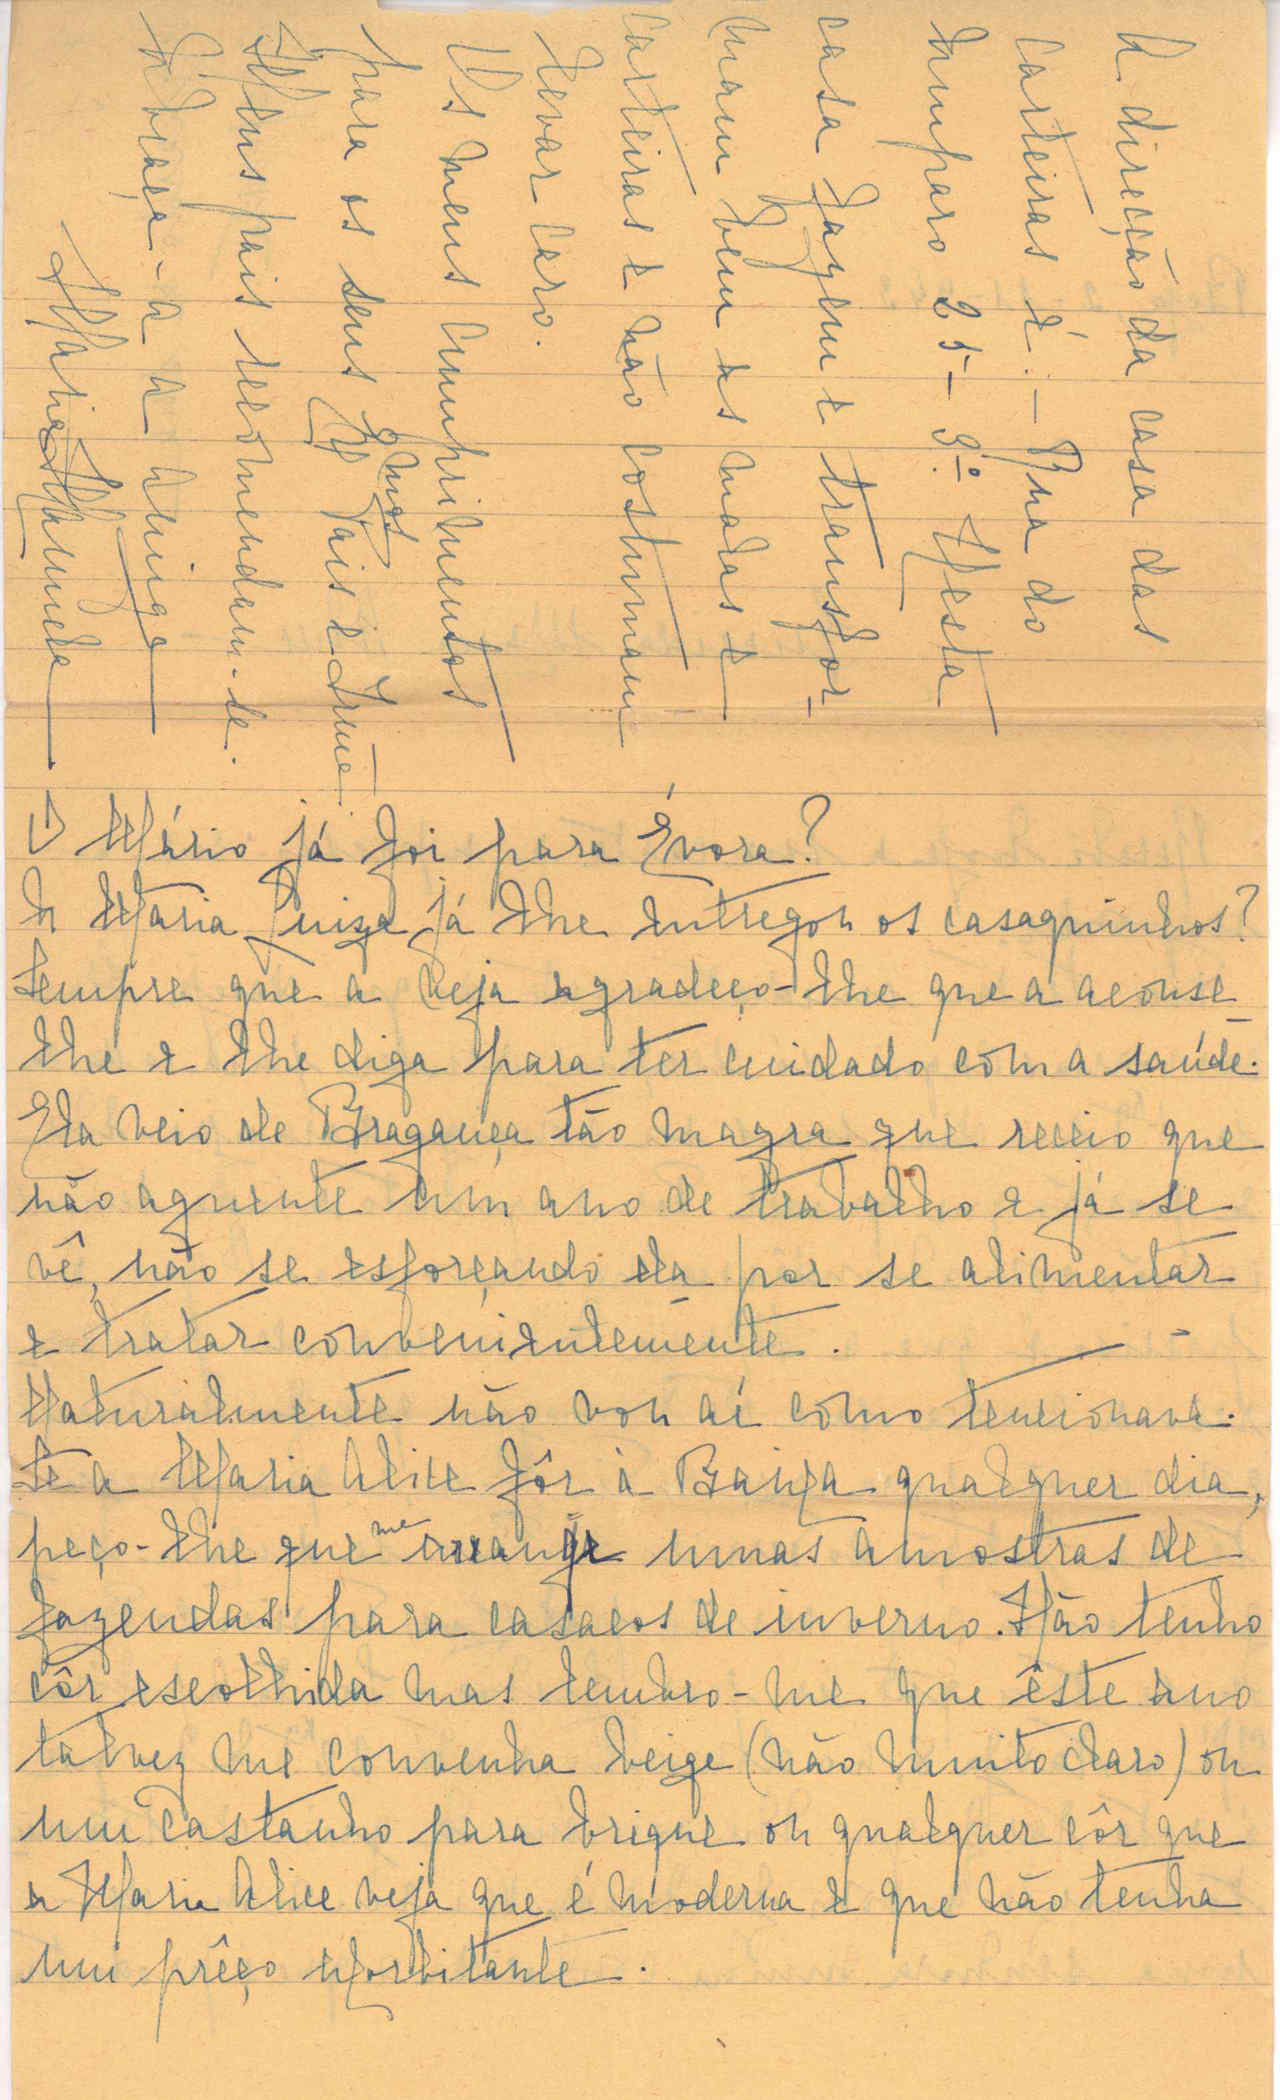 O Mário já foi para Évora?
A Maria Luiza já lhe entregou os casaquinhos?
Sempre que a veja agradeço-lhe que a aconse-
lhe e lhe diga para ter cuidado com a saúde.
Ela veio de Bragança tão magra que receio que
não aguente um ano de trabalho e já se
vê, não se esforçando ela por se alimentar
e tratar convenientemente.
Naturalmente não vou aí como tencionava.
Se a Maria Alice fôr à Baixa qualquer dia,
peço-lhe que me arranje umas amostras de
fazendas para casacos de inverno. Não tenho
côr escolhida mas lembro-me que êste ano
talvez me convenha beige (não muito claro) ou
um castanho para brique ou qualquer côr que
a Maria Alice veja que é moderna e que não tenha
um prêço exorbitante.
A direcção da casa das
carteiras é: - Rua do
Amparo 25- 3º. Nesta
casa fazem e transfor-
mam bem as malas e
carteiras e não costumam
levar caro.
Os meus cumprimentos
para os seus Exmos Pais e Irmã.
Meus pais recomendam-se.
Abraça-a a amiga
Maria Manuela